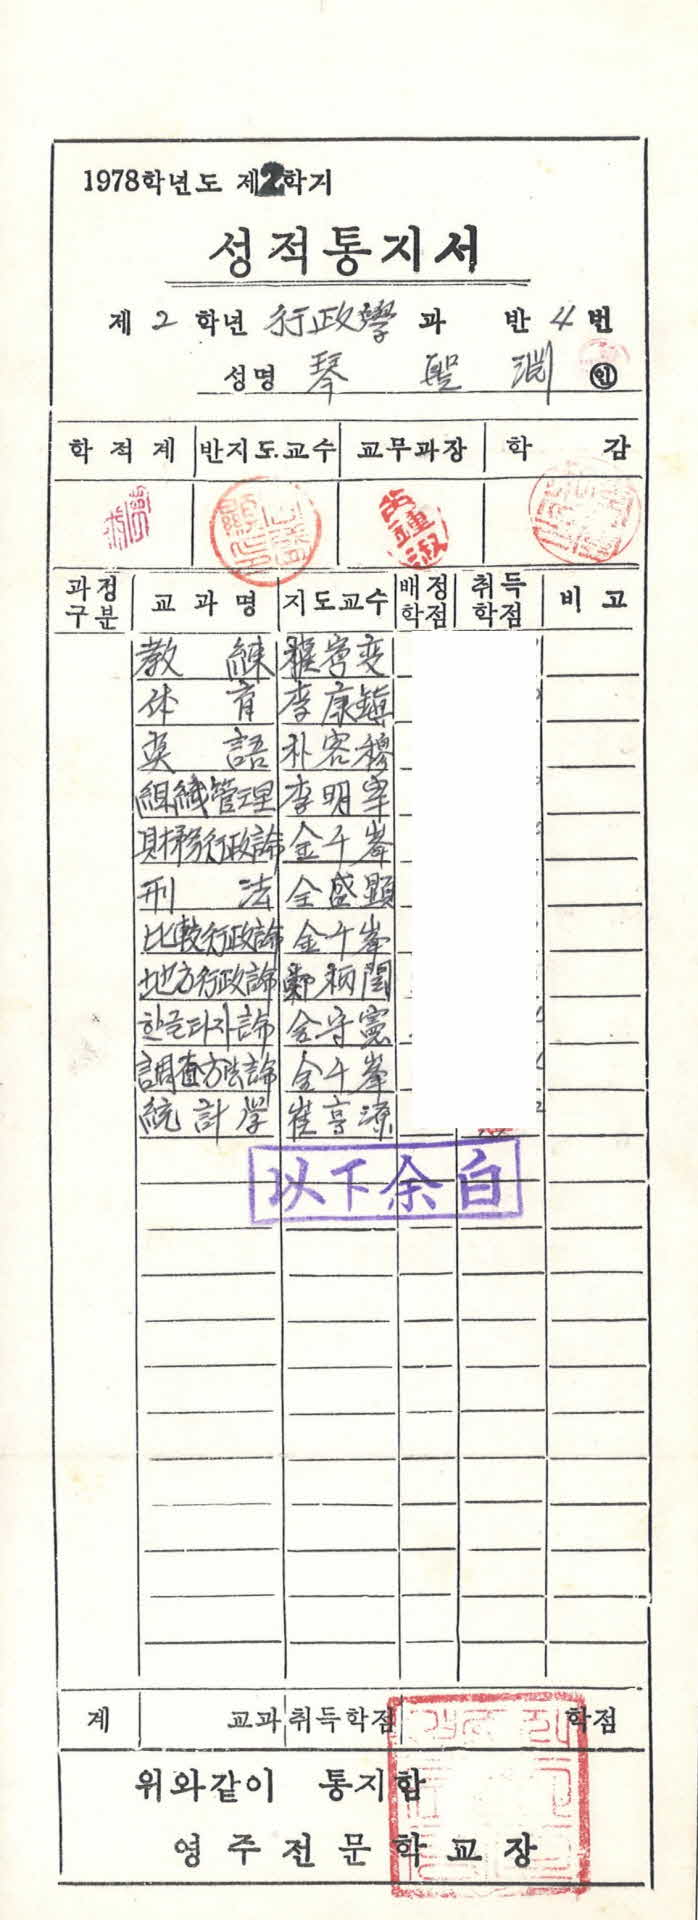 1978학년도 제2학기
성적통지서
제 2 학년 行政學 과 반 4 번
성명 琴 聖 淵 ㊞
학적계 반지도.교수 교무과장 학 감
과정구분 교과명 지도교수 배정학점 취득학점 비고
教 練
体 育 李康鎭
英 語 朴容穆
組織管理 李明宰
財務行政論 金千峯
刑 法 金盛顯
比較行政論 金千峯
地方行政論 鄭柄閏
한글타자論 金守憲
調査方法論 金千峯
統計學 崔亨源
以下余白
계 교과 취득학점 학점
위와같이 통지함
영주전문학교장